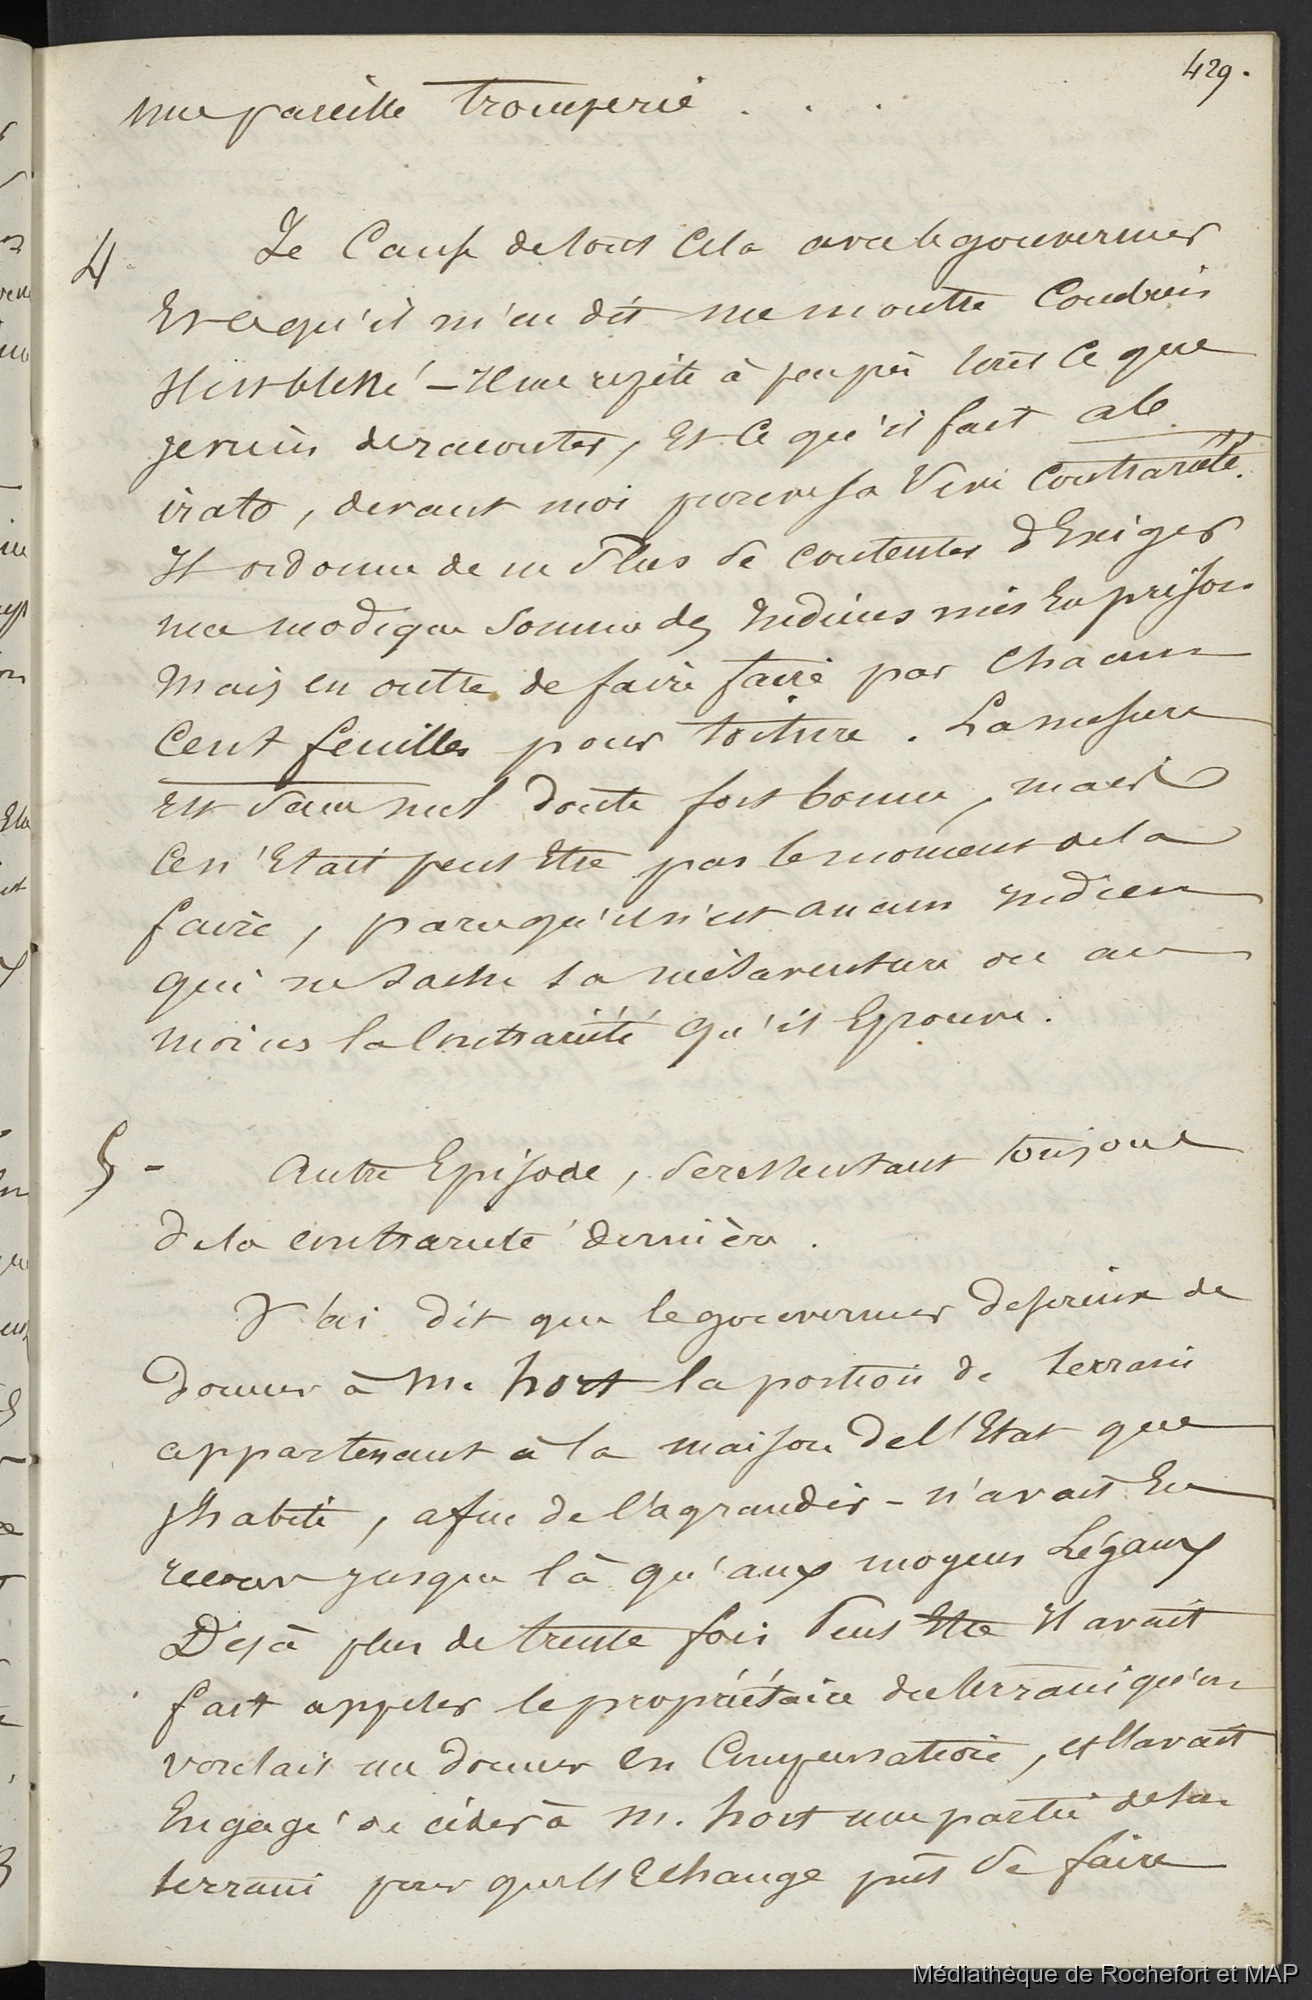 429.
une pareille tromperie . . .
4 Je Cause de tout Cela avec le gouverneur
Et ce qu'il m'en dit me montre Combien
Il est blessé - Il me répète à peu près tout Ce que
je viens de raconter, Et Ce qu'il fait ab
irato, devant moi prouve sa Vive Contrariété.
Il ordonne de ne Plus se contenter d'Exiger
une modique Somme des Indiens mis En prison
Mais en outre de faire faire par Chacun
Cent feuilles pour toiture. La mesure
Est sans nul doute fort bonne, mais
Ce n'Etait peut Etre pas le moment de la
faire, parce qu'il n'est aucun Indien
qui ne Sache sa mésaventure ou au
moins la Contrariété qu'il Eprouve.
5 - Autre Episode, se ressentant toujours
de la contrariété dernière.
J'ai dit que le gouverneur désireux de
donner à M. hort la portion de terrain
appartenant à la maison de l'Etat que
J'habite, afin de l'agrandir - n'avait Eu
recours jusque là qu'aux moyens Légaux
Déjà plus de trente fois Peut Etre Il avait
fait appeler le propriétaire du terrain qu'on
voulait me donner en Compensation, et l'avait
Engagé de céder à M. hort une partie de son
terrain pour que l'Echange pût Se faire
Médiathèque de Rochefort et MAP